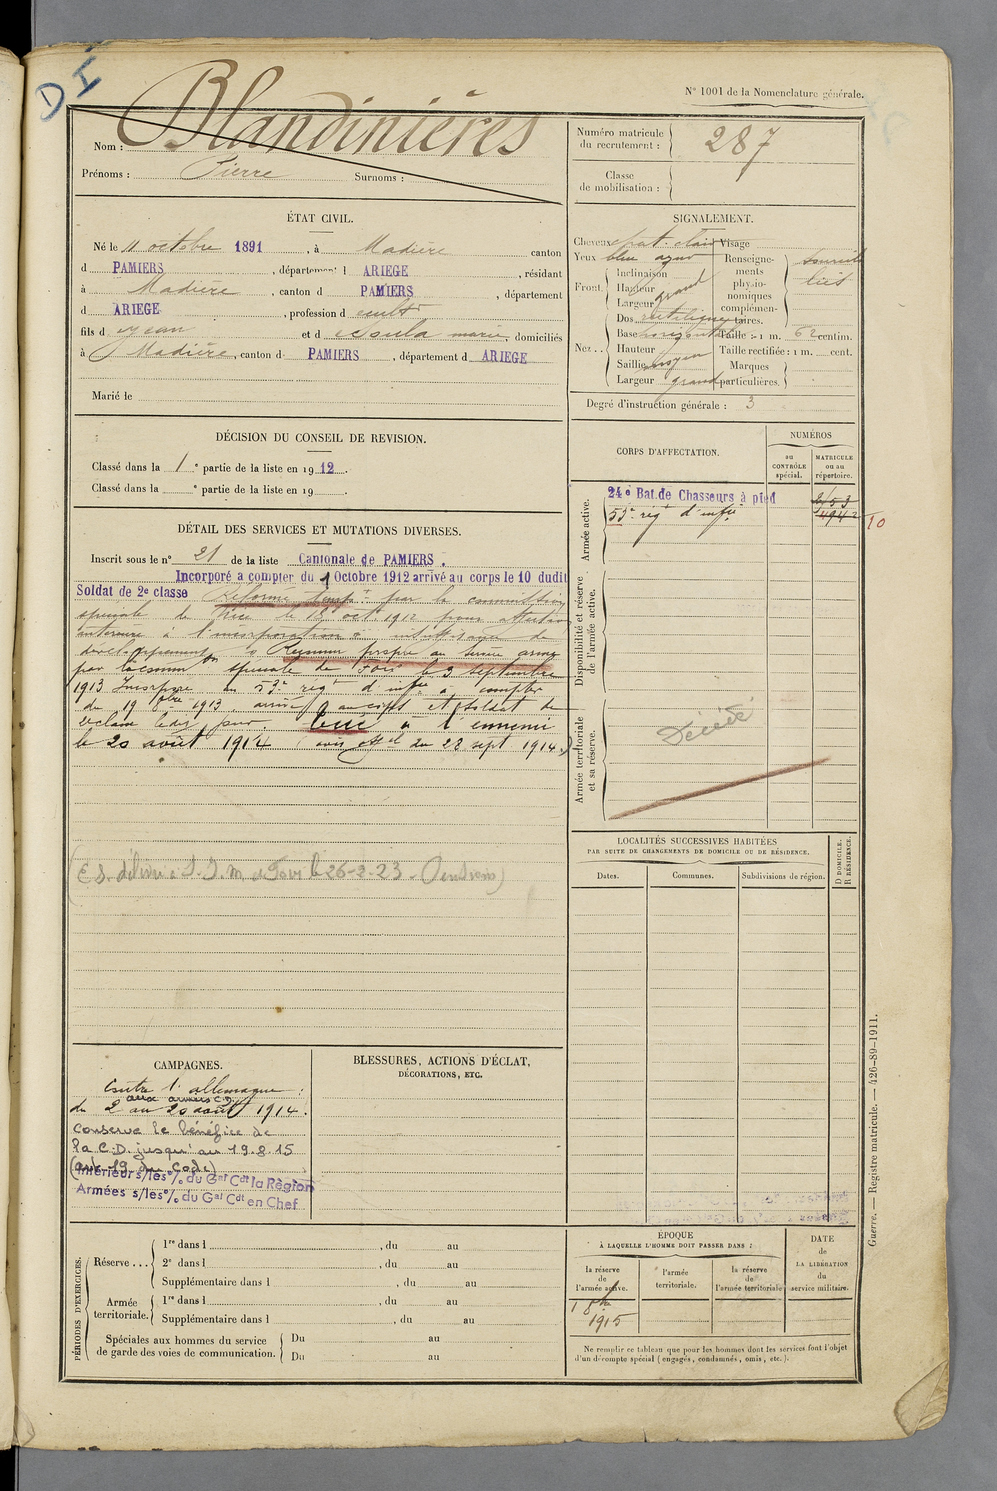 DI
N° 1001 de la Nomenclature générale.
Nom : Blandinières
Prénoms : Pierre Surnoms :
Numéro matricule du recrutement : 287
Classe de mobilisation :
ÉTAT CIVIL.
Né le 11 octobre 1891, à Madière canton
d PAMIERS, département d ARIEGE, résidant
à Madière, canton d PAMIERS, département
d ARIEGE, profession d cult
fils d Jean et d Soula marie, domiciliés
à Madière, canton d PAMIERS, département d ARIEGE
Marié le
SIGNALEMENT.
Cheveux chat. clair Visage
Yeux bleu azur Renseigne-
ments
physio-
nomiques
complémen-
taires.
Front Inclinaison
Hauteur grand
Largeur
Nez Dos rectiligne
Base horizontale
Hauteur
Saillie moyen
Largeur grand
Taille : 1 m. 62 centim.
Taille rectifiée : 1 m. cent.
Marques particulières.
Degré d'instruction générale : 3
DÉCISION DU CONSEIL DE REVISION.
Classé dans la 1e partie de la liste en 1912.
Classé dans la e partie de la liste en 19
DÉTAIL DES SERVICES ET MUTATIONS DIVERSES.
Inscrit sous le n° 21 de la liste Cantonale de PAMIERS.
Incorporé a compter du 1 Octobre 1912 arrivé au corps le 10 dudit
Soldat de 2e classe Réformé tempre par la commission
spéciale de Nice le 18 oct. 1912 pour
antérieure à l'incorporation insuffisance de
développement Reconnu propre au service armé
par la comon spéciale de Foix le 3 septembre
1913 Incorporé au 53e régt d'infie à compter
du 19 1913 arrivé au corps et soldat de
2e classe ledit jour. tué à l'ennemi
le 20 août 1914 (avis offel du 28 sept 1914.)
(E.S. délivré à S.I.M. de Foix le 26-2-23 - Pensions)
CORPS D'AFFECTATION.
NUMÉROS
au CONTRÔLE spécial.
MATRICULE ou au répertoire.
Armée active.
24e Bat. de Chasseurs à pied
53e régt d'infie 4942
10
Disponibilité et réserve de l'armée active.
Armée territoriale et sa réserve.
Décédé
LOCALITÉS SUCCESSIVES HABITÉES
PAR SUITE DE CHANGEMENTS DE DOMICILE OU DE RÉSIDENCE.
Dates. Communes. Subdivisions de région.
D DOMICILE.
R RÉSIDENCE.
CAMPAGNES.
Contre l'allemagne :
aux armées C.D.
du 2 au 20 août 1914.
Conserve le bénéfice de
la C.D. jusqu'au 19.8.15
(art 19 du Code)
Intérieur s/les % du Gal Cdt la Région
Armées s/les % du Gal Cdt en Chef
BLESSURES, ACTIONS D'ÉCLAT,
DÉCORATIONS, ETC.
PÉRIODES D'EXERCICES.
Réserve ... 1re dans l , du au
2e dans l , du au
Supplémentaire dans l , du au
Armée territoriale. 1re dans l , du au
Supplémentaire dans l , du au
Spéciales aux hommes du service
de garde des voies de communication. Du au
Du au
ÉPOQUE
À LAQUELLE L'HOMME DOIT PASSER DANS :
la réserve de l'armée active.
l'armée territoriale.
la réserve de l'armée territoriale
DATE de LA LIBÉRATION du service militaire.
1 8bre
1915
Ne remplir ce tableau que pour les hommes dont les services font l'objet
d'un décompte spécial (engagés, condamnés, omis, etc.).
Guerre. — Registre matricule. — 426-89-1911.